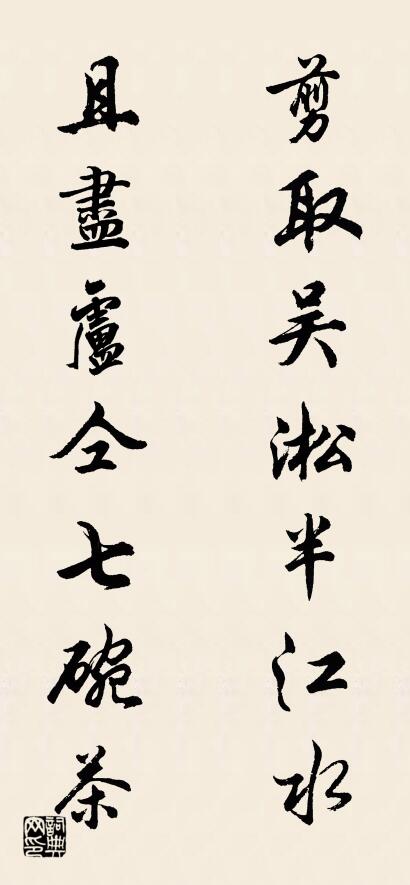 剪取吴淞半江水
且盡盧仝七碗茶
詞典网印